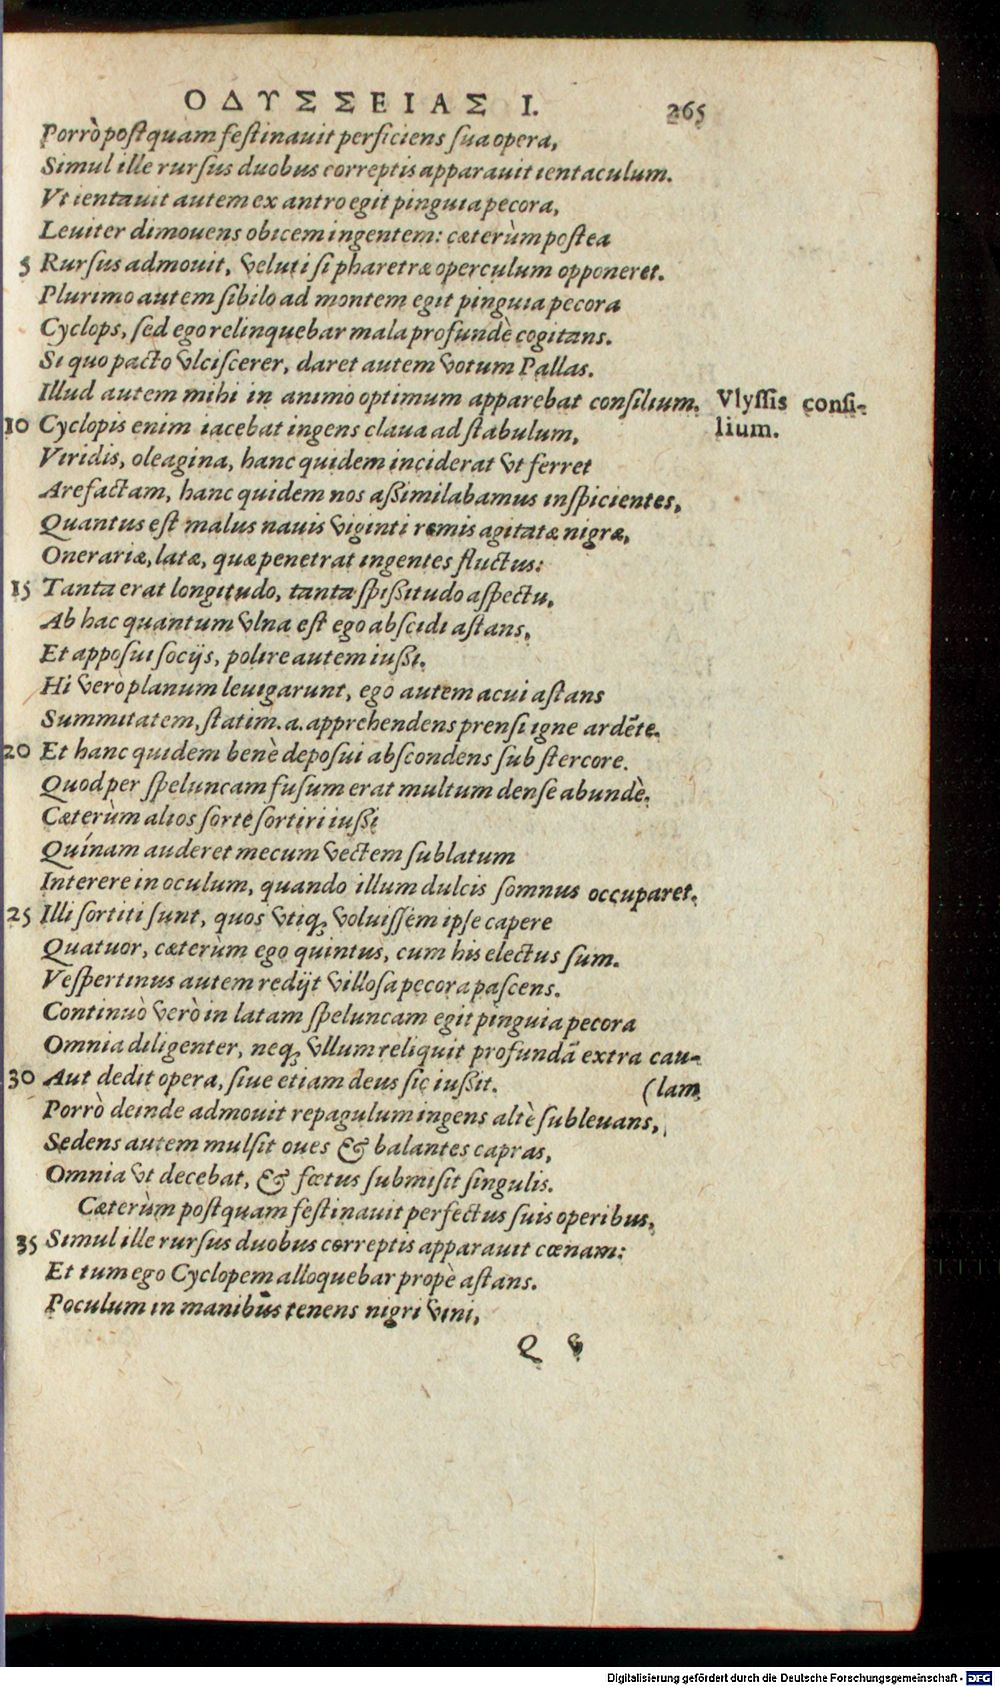 ΟΔΥΣΣΕΙΑΣ Ι. 265
Porrò postquam festinauit perficiens sua opera,
Simul ille rursus duobus correptis apparauit ientaculum.
Vt ientauit autem ex antro egit pinguia pecora,
Leuiter dimouens obicem ingentem: cæterùm postea
5 Rursus admouit, veluti si pharetræ operculum opponeret.
Plurimo autem sibilo ad montem egit pinguia pecora
Cyclops, sed ego relinquebar mala profundè cogitans.
Si quo pacto vlciscerer, daret autem votum Pallas.
Illud autem mihi in animo optimum apparebat consilium. Vlyssis consi-
10 Cyclopis enim iacebat ingens claua ad stabulum, lium.
Viridis, oleagina, hanc quidem inciderat vt ferret
Arefactam, hanc quidem nos assimilabamus inspicientes,
Quantus est malus nauis viginti remis agitatæ nigræ,
Onerariæ, latæ, quæ penetrat ingentes fluctus:
15 Tanta erat longitudo, tanta spissitudo aspectu,
Ab hac quantum vlna est ego abscidi astans,
Et apposui socijs, polire autem iussi.
Hi verò planum leuigarunt, ego autem acui astans
Summitatem, statim .a. apprehendens prensi igne ardēte.
20 Et hanc quidem benè deposui abscondens sub stercore.
Quod per speluncam fusum erat multum dense abundè.
Cæterùm alios sorte sortiri iussi
Quínam auderet mecum vectem sublatum
Interere in oculum, quando illum dulcis somnus occuparet.
25 Illi sortiti sunt, quos vtiq; voluissem ipse capere
Quatuor, cæterùm ego quintus, cum his electus sum.
Vespertinus autem redijt villosa pecora pascens.
Continuò verò in latam speluncam egit pinguia pecora
Omnia diligenter, neq; vllum reliquit profundā extra cau-
30 Aut dedit opera, siue etiam deus sic iussit. (lam
Porrò deinde admouit repagulum ingens altè subleuans,
Sedens autem mulsit oues & balantes capras,
Omnia vt decebat, & fœtus submisit singulis.
Cæterùm postquam festinauit perfectus suis operibus,
35 Simul ille rursus duobus correptis apparauit cœnam:
Et tum ego Cyclopem alloquebar propè astans.
Poculum in manibus tenens nigri vini,
Q
Digitalisierung gefördert durch die Deutsche Forschungsgemeinschaft - DFG